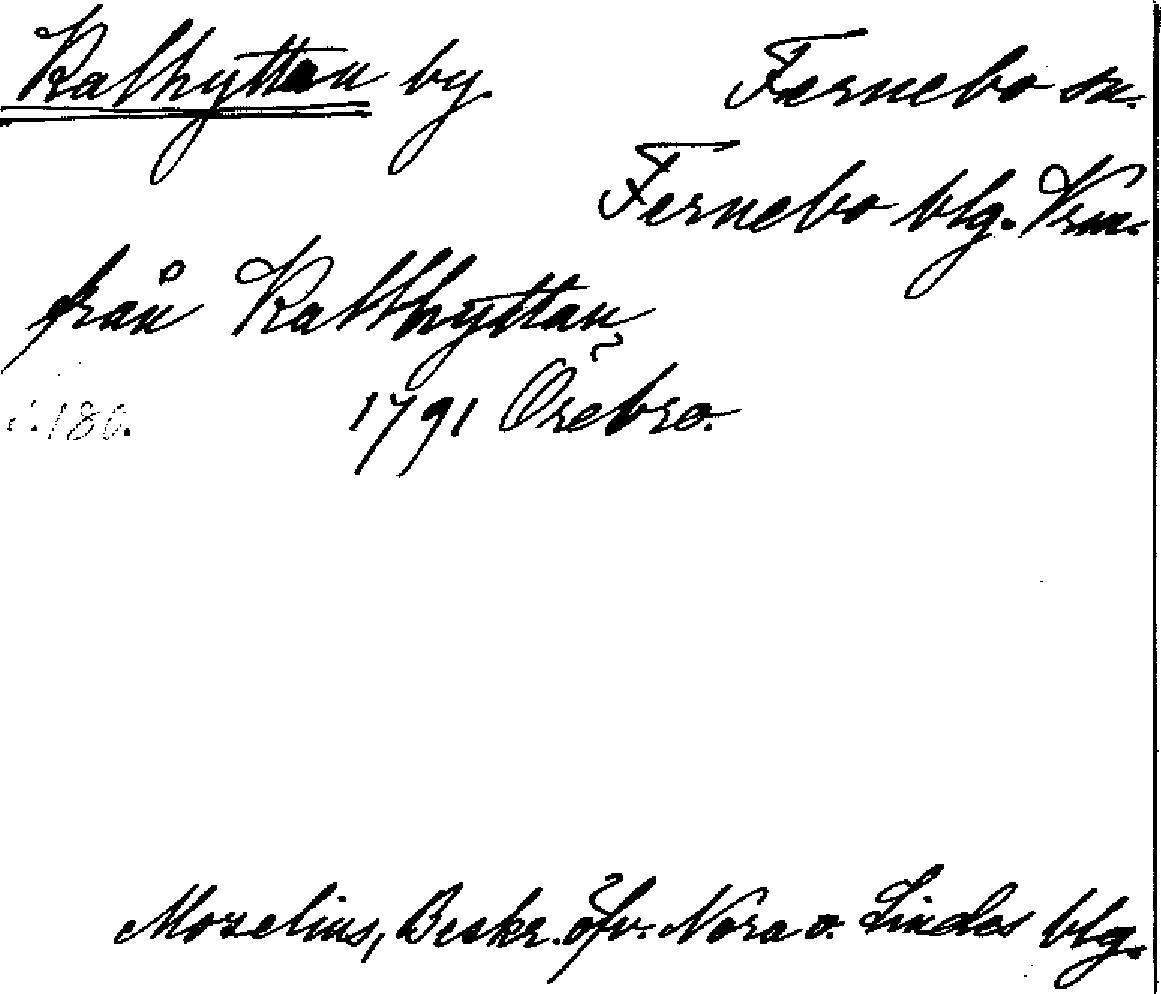 Kalhyttan by. Fernebo sn.
Fernebo blg. Vrm.
från Kallhyttan
s. 180. 1791 Örebro.
Mozelius, Beskr. öfv. Nora o. Lindes blg.